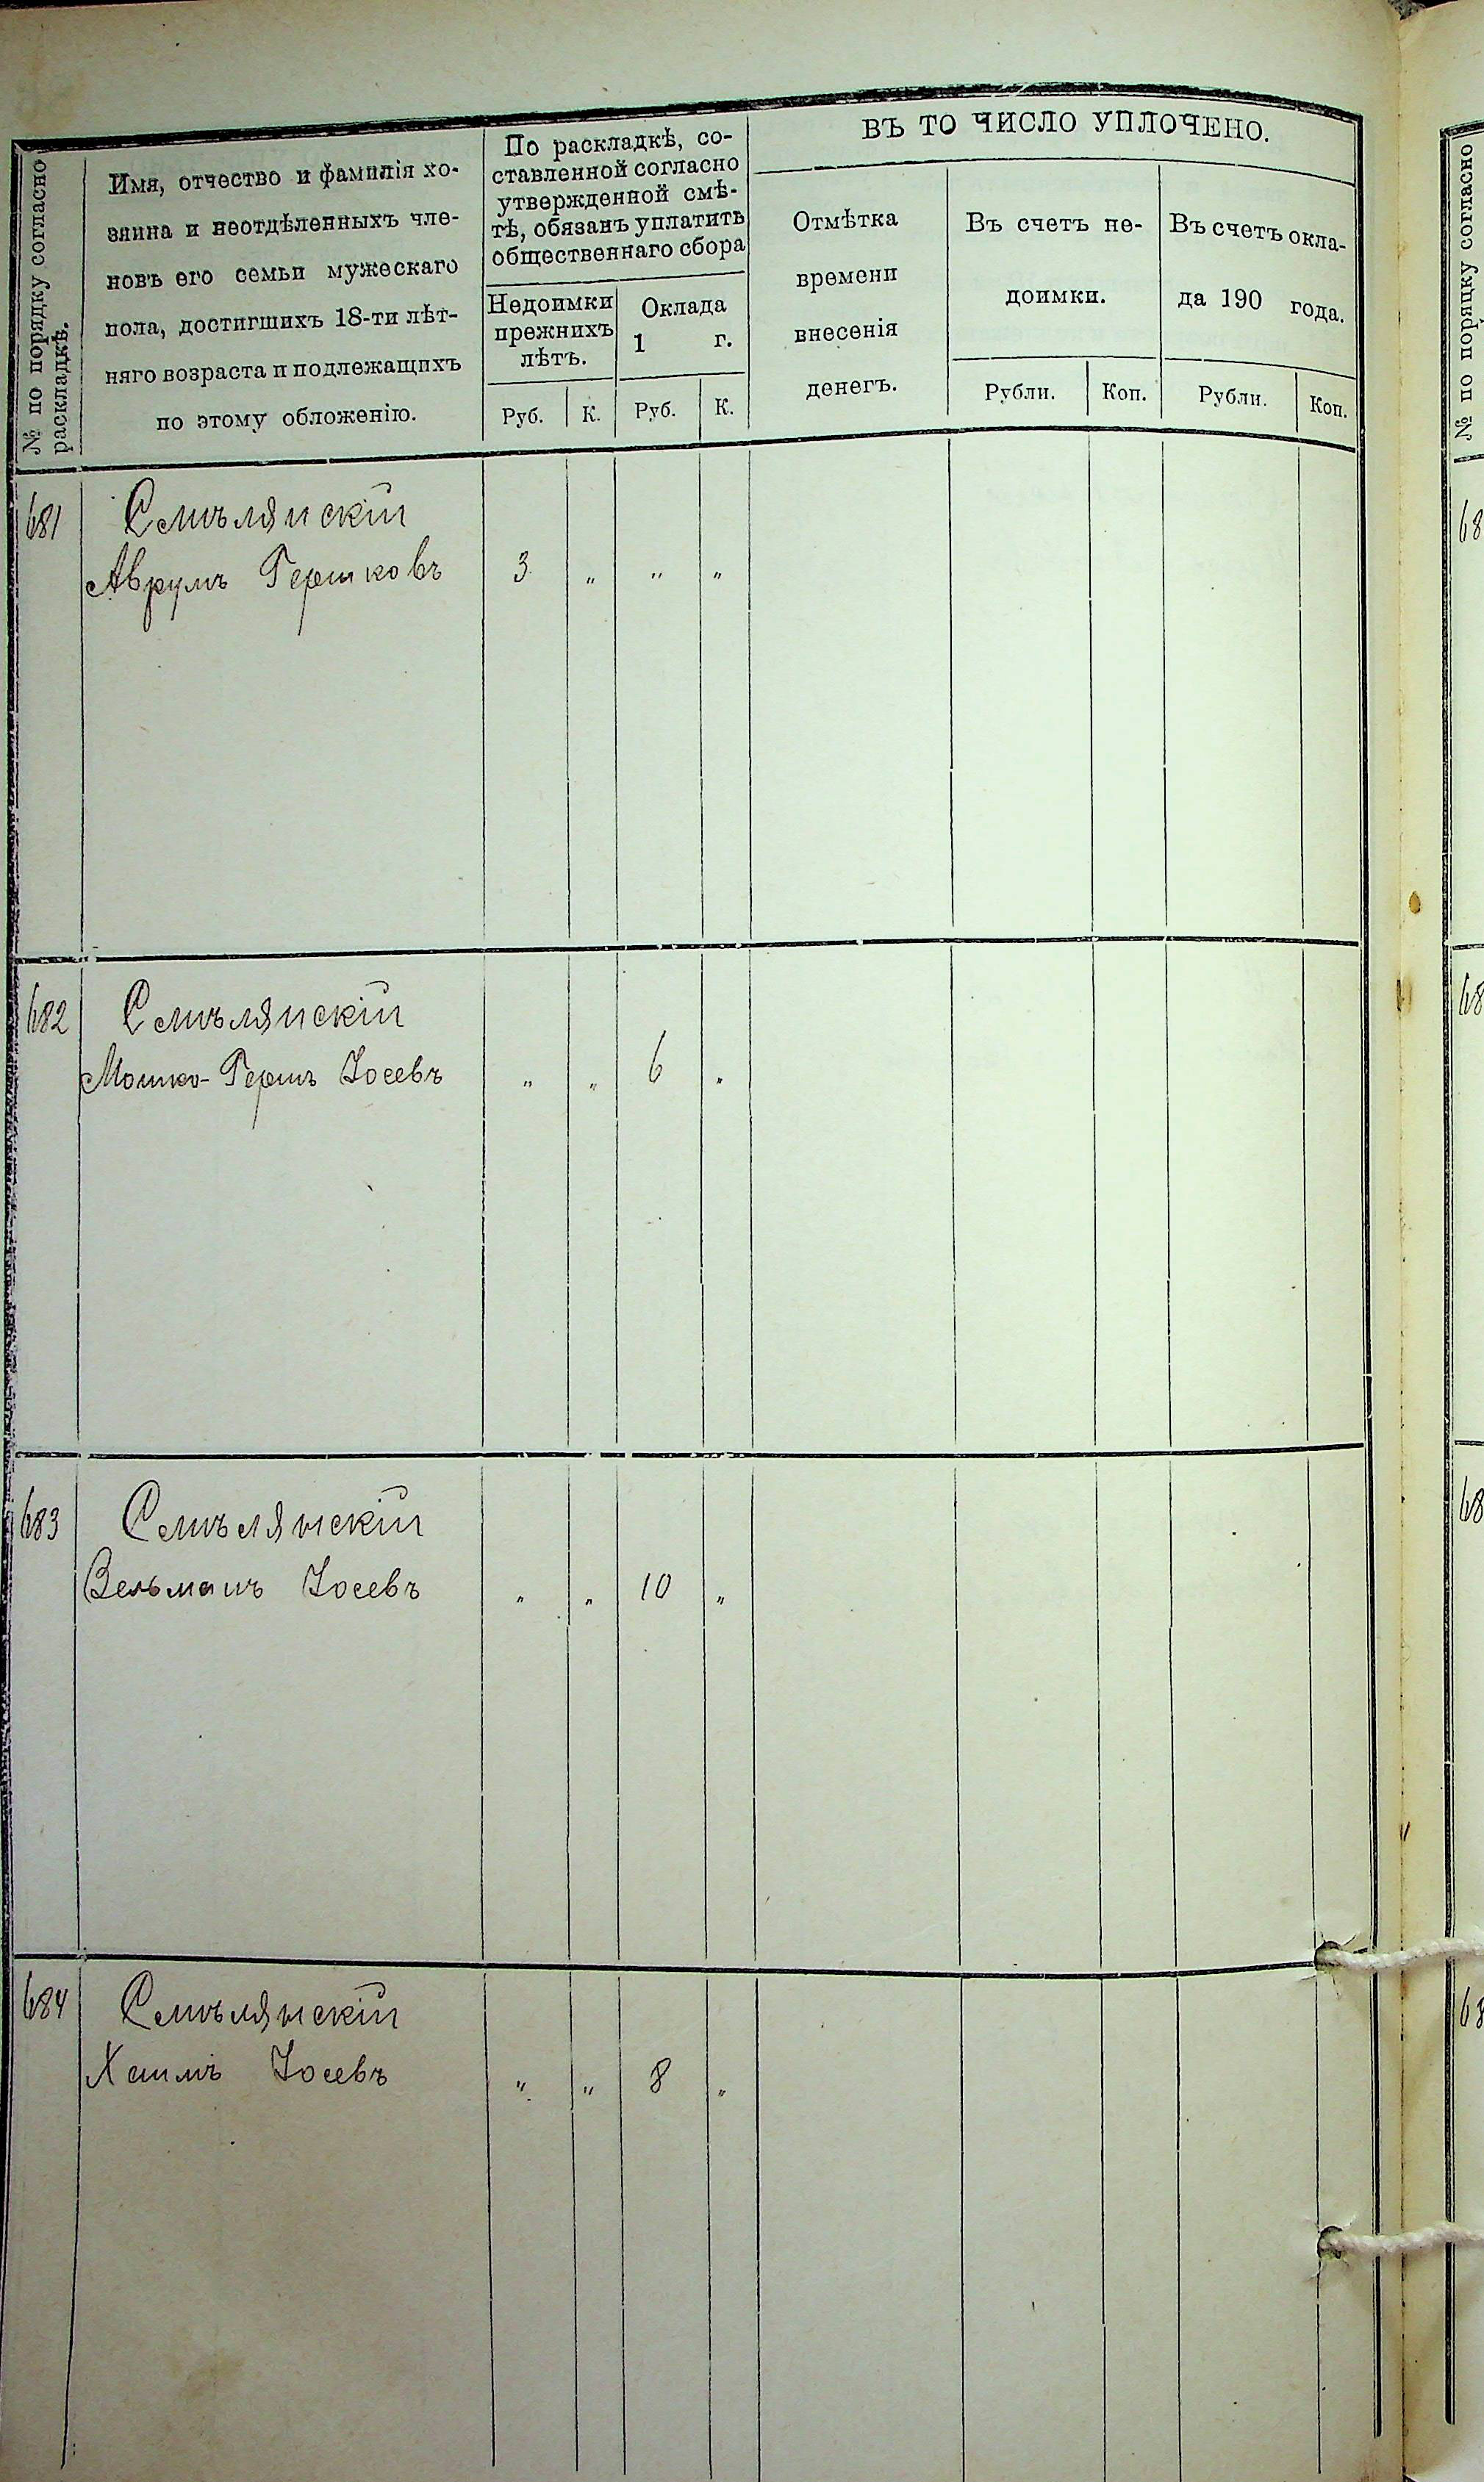 № по порядку согласно
раскладкѣ.
Имя, отчество и фамилія хо-
зяина и неотдѣленныхъ чле-
новъ его семьи мужескаго
пола, достигшихъ 18-ти лѣт-
няго возраста и подлежащихъ
по этому обложенію.
По раскладкѣ, со-
ставленной согласно
утвержденной смѣ-
тѣ, обязанъ уплатить
общественнаго сбора
Недоимки
прежнихъ
лѣтъ.
Оклада
1 г.
Руб. К. Руб. К.
ВЪ ТО ЧИСЛО УПЛОЧЕНО.
Отмѣтка
времени
внесенія
денегъ.
Въ счетъ не-
доимки.
Рубли. Коп.
Въ счетъ окла-
да 190 года.
Рубли. Коп.
681 Смѣлянскій
Аврумъ Гершковъ 3 " " "
682 Смѣлянскій
Мошко-Гершъ Іосевъ " " 6 "
683 Смѣлянскій
Зельманъ Іосевъ " " 10 "
684 Смѣлянскій
Хаимъ Іосевъ " " 8 "
№ по порядку согласно
68
68
68
68